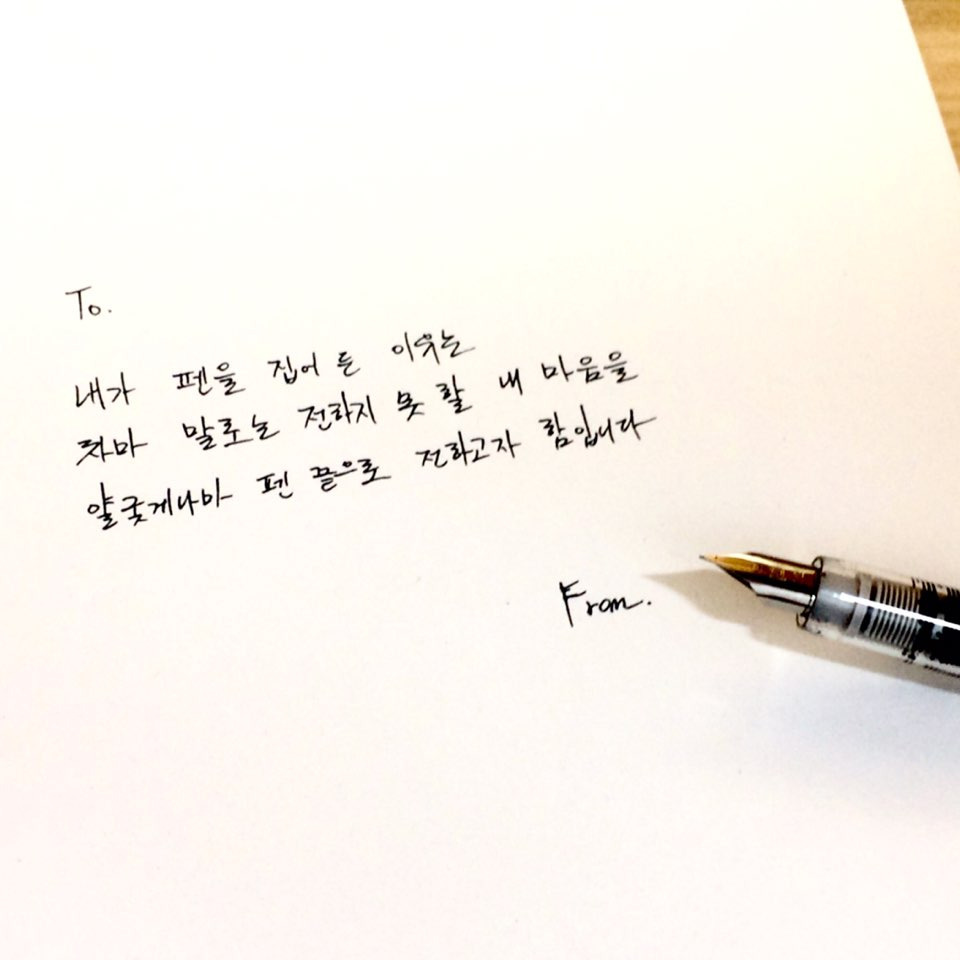 To.
내가 펜을 집어 든 이유는
차마 말로는 전하지 못 할 내 마음을
얄궂게나마 펜 끝으로 전하고자 함입니다
From.